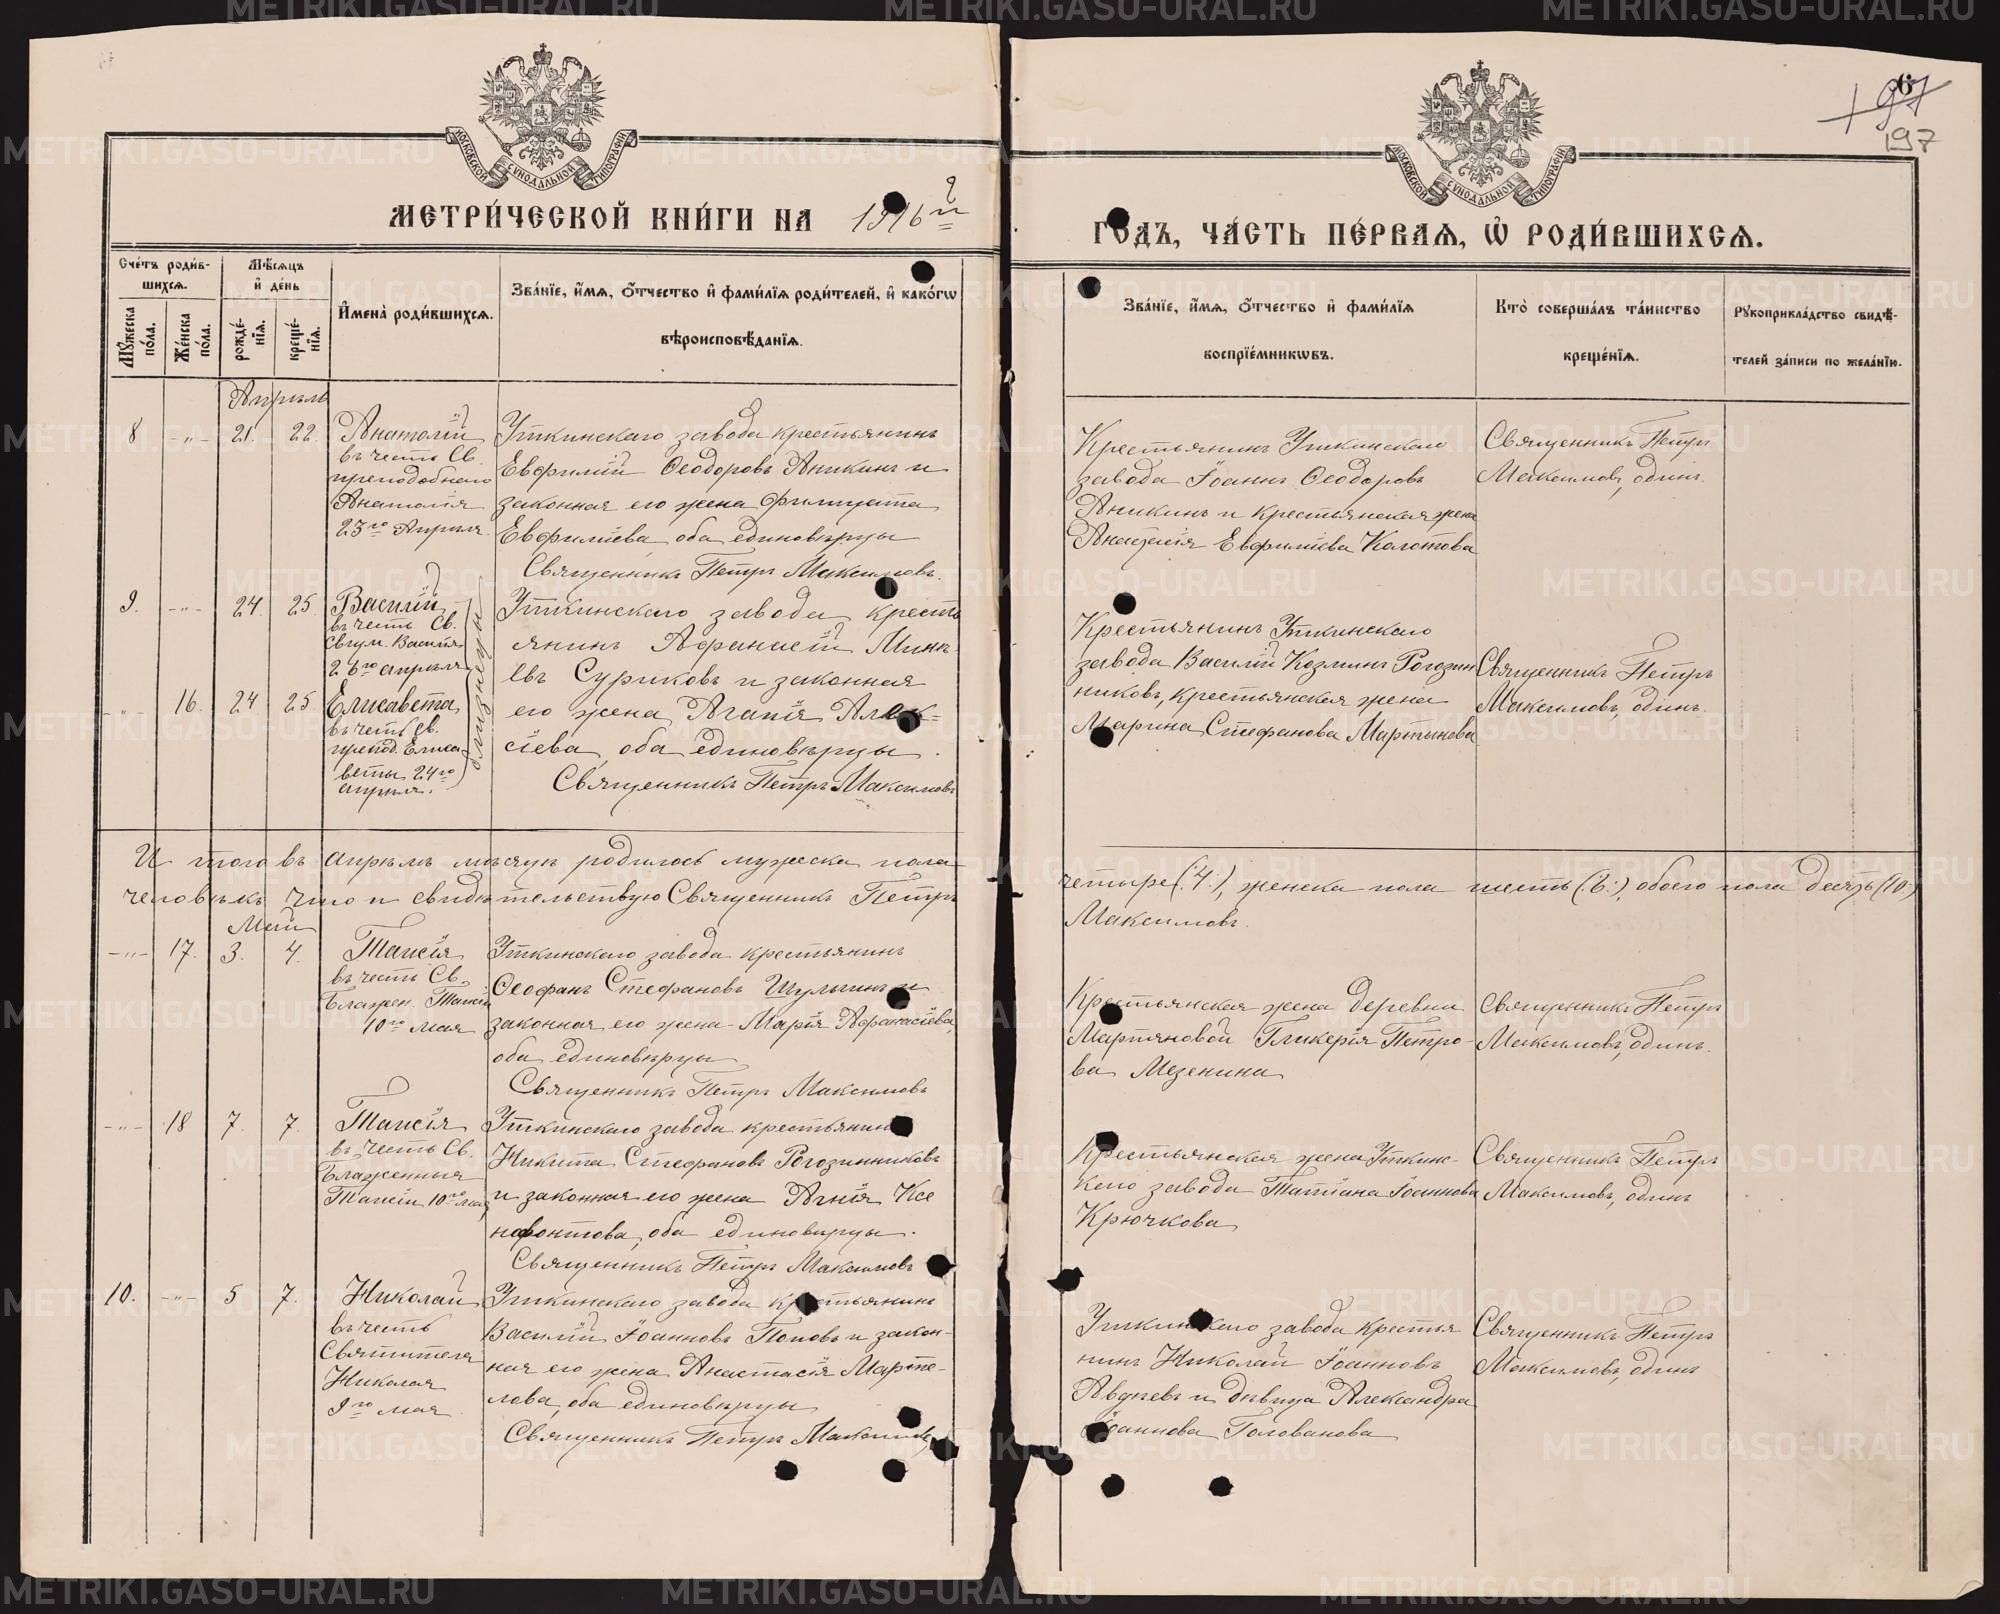 МЕТРИ́ЧЕСКОЙ КНИ́ГИ НА 1916й
ГОДЪ, ЧА́СТЬ ПЕ́РВАЯ, Ѡ РОДИ́ВШИХСЯ.
МОСКОВСКОЙ СѴНОДАЛЬНОЙ ТИПОГРАФІИ
МОСКОВСКОЙ СѴНОДАЛЬНОЙ ТИПОГРАФІИ
197
Сче́тъ роди́вшихся.
Му́жеска по́ла.
Же́нска по́ла.
Мѣ́сяцъ и де́нь
рожде́нїя.
креще́нїя.
Имена̀ роди́вшихся.
Зва́нїе, и́мя, о́тчество и фами́лїя роди́телей, и како́гѡ
вѣроисповѣ́данїя.
Зва́нїе, и́мя, о́тчество и фами́лїя
воспрїе́мникѡвъ.
Кто̀ соверша́лъ та́инство
креще́нїя.
Рукоприкла́дство свидѣ́-
телей за́писи по жела́нїю.
Апрѣль
8 -„- 21. 22.
Анатолій
въ честь Св.
преподобнаго
Анатолія
23го Апрѣля
Уткинскаго завода крестьянинъ
Евфимій Ѳеодоровъ Аникинъ и
законная его жена Филицата
Евфиміева, оба единовѣрцы
Священникъ Петръ Максимовъ.
Крестьянинъ Уткинскаго
завода Іоаннъ Ѳеодоровъ
Аникинъ и крестьянская жена
Анастасія Евфиміева Колотова
Священникъ Петръ
Максимовъ, одинъ.
9. -„- 24. 25
Василій
въ честь Св.
Свщм. Василія
26го апрѣля
-„- 16. 24 25
Елисавета
въ честь Св.
препод. Елиса-
веты 24го
апрѣля.
Уткинскаго завода кресть
янинъ Афанасій Мин
евъ Суриковъ и законная
его жена Агапія Алек-
сіева, оба единовѣрцы.
Священникъ Петръ Максимовъ
Крестьянинъ Уткинскаго
завода Василій Козминъ Рогозин
никовъ, крестьянская жена
Марина Стефанова Мартынова
Священникъ Петръ
Максимовъ, одинъ.
И того въ апрѣлѣ мѣсяцѣ родилось мужеска пола четыре (:4:), женска пола шесть (:6:), обоего пола десять (:10:)
человѣкъ. Что и свидѣтельствую Священникъ Петръ Максимовъ.
Май
-„- 17. 3. 4.
Таисія
въ честь Св.
Блажен. Таисіи
10го мая
Уткинскаго завода крестьянинъ
Ѳеофанъ Стефановъ Шульгинъ и
законная его жена Марія Афанасіева,
оба единовѣрцы
Священникъ Петръ Максимовъ
Крестьянская жена деревни
Мартяновой Гликерія Петро-
ва Мезенина
Священникъ Петръ
Максимовъ, одинъ.
-„- 18 7. 7.
Таисія
въ честь Св.
Блаженныя
Таисіи 10го мая
Уткинскаго завода крестьянинъ
Никита Стефановъ Рогозинниковъ
и законная его жена Агнія Ксе
нофонтова, оба единовѣрцы.
Священникъ Петръ Максимовъ
Крестьянская жена Уткинс-
каго завода Татіана Іоаннова
Крючкова
Священникъ Петръ
Максимовъ, одинъ
10. -„- 5 7.
Николай
въ честь
Святителя
Николая
9го мая
Уткинскаго завода крестьянинъ
Василій Іоанновъ Поповъ и закон-
ная его жена Анастасія Марте-
лова, оба единовѣрцы
Священникъ Петръ Максимовъ
Уткинскаго завода крестья
нинъ Николай Іоанновъ
Авдѣевъ и дѣвица Александра
Іоаннова Голованова
Священникъ Петръ
Максимовъ, одинъ
METRIKI.GASO-URAL.RU